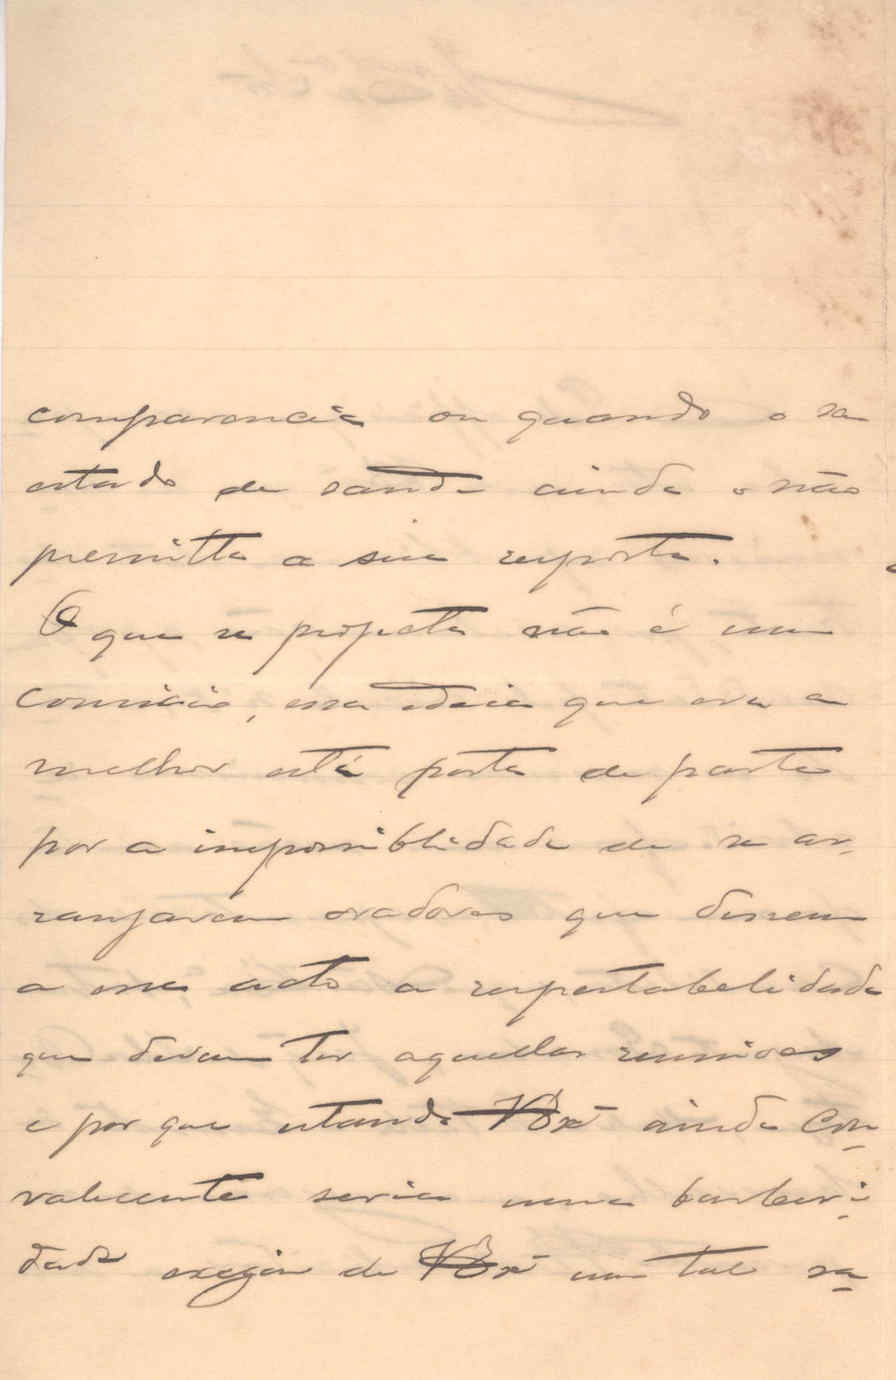 comparencia ou quando o seu
estado de saude ainda o não
permitta a sua resposta.
O que se projecta não é um
comicio, essa ideia que era a
melhor está posta de parte
por a impossiblidade de se ar-
ranjarem oradores que dessem
a esse acto a respeitabelidade
que devem ter aquellas reunioes
e por que estando VExª ainda con-
valescente seria uma barberi-
dade exegir de VExª um tal sa-